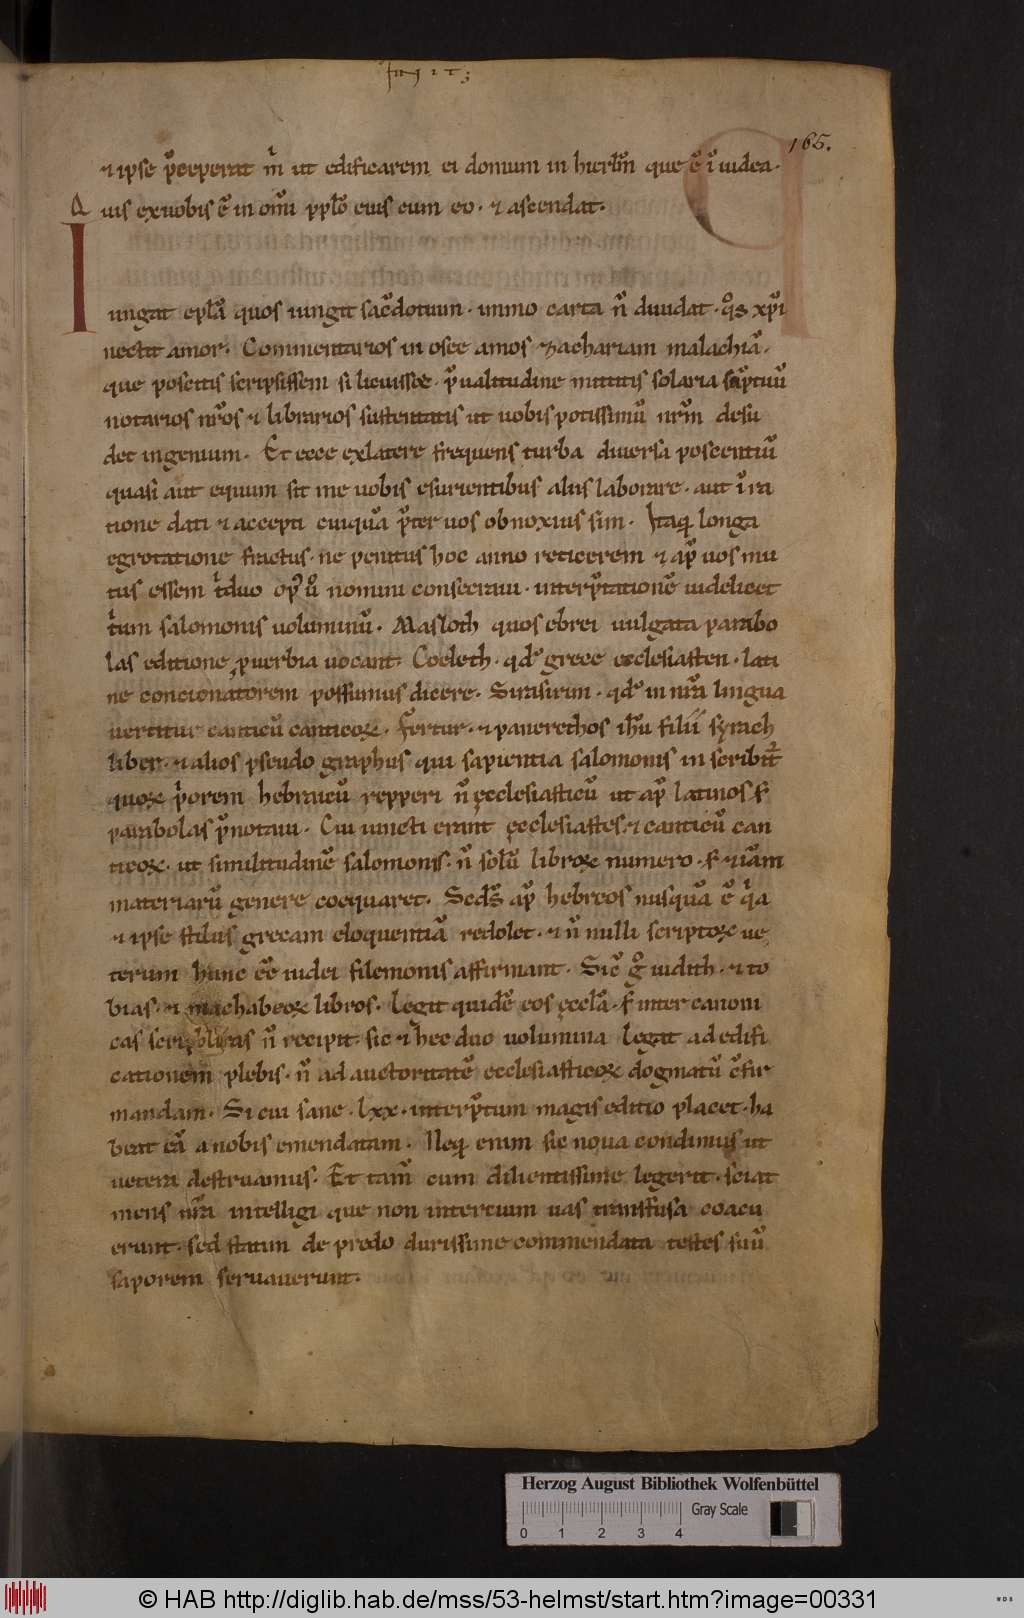 FINIT;
165.
⁊ ipse p̄ceperat m̄ ut edificarem ei domum in hierl̄m que ē ī iudea·
Quis ex uobis ē in om̄i pp̄lo eius cum eo· ⁊ ascendat·
Iungat ep̄la quos iungit sac̄dotium· immo carta n̄ diuidat· q̄s xp̄i
nectit amor· Commentarios in osee amos zachariam malachiā·
que poscitis scripsissem si licuisset· p̄ualitudine mittitis solaria sūptuū
notarios nr̄os ⁊ librarios sustentatis ut uobis potissimū nr̄m desu
det ingenium· Et ecce ex latere frequens turba diuersa poscentiū
quasi aut equum sit me uobis esurientibus aliis laborare· aut ī ra
tione dati ⁊ accepti cuiquā p̄ter uos obnoxius sim· Itaq; longa
egrotatione fractus· ne penitus hoc anno reticerem ⁊ ap̄ uos mu
tus essem t̄duo op̄ ū nomini consecraui· interp̄tationē uidelicet
t̄um salomonis uoluminū· Masloth quos ebrei uulgata parabo
las editione ꝓuerbia uocant· Coeleth· qd̄ grece ecclesiasten· lati
ne concionatorem possumus dicere· Sirasirim· qd̄ in nr̄a lingua
uertitur canticū canticoꝝ· Fertur· ⁊ panerethos ih̄u filii syrach
liber· ⁊ alios pseudo graphus qui sapientia salomonis in scribit̄
quoꝝ p̄orem hebraicū repperi n̄ ęcclesiasticū ut ap̄ latinos s;
parabolas p̄notaui· Cui iuncti erant ęcclesiastes· ⁊ canticū can
ticoꝝ· ut similitudinē salomonis· n̄ solū libroꝝ numero· s; ⁊iā
materiarū genere coequaret· Scd̄s ap̄ hebreos nusquā ē q̄a
⁊ ipse stilus grecam eloquentiā redolet· ⁊ n̄ nulli scriptoꝝ ue
terum hunc eē iudei filemonis affirmant· Sic̄ g̊ iudith· ⁊ to
bias· ⁊ machabeoꝝ libros· legit quidē eos ęccl̄a· s; inter canoni
cas scripturas n̄ recipit· sic ⁊ hec duo uolumina legat ad edifi
cationem plebis· n̄ ad auctoritatē ecclesiasticoꝝ dogmatū c̄fir
mandam· Si cui sane· lxx· interp̄tum magis editio placet· ha
bent eā a nobis emendatam· Neq; enim sic noua condimus ut
uetera destruamus· Et tam̄ cum diligentissime legerit· sciat
mens nr̄a intelligi que non in tercium uas transfusa coacu
erunt· sed statim de predo durissime commendata testes suū
saporem seruauerunt·
Herzog August Bibliothek Wolfenbüttel
Gray Scale
0 1 2 3 4
© HAB http://diglib.hab.de/mss/53-helmst/start.htm?image=00331